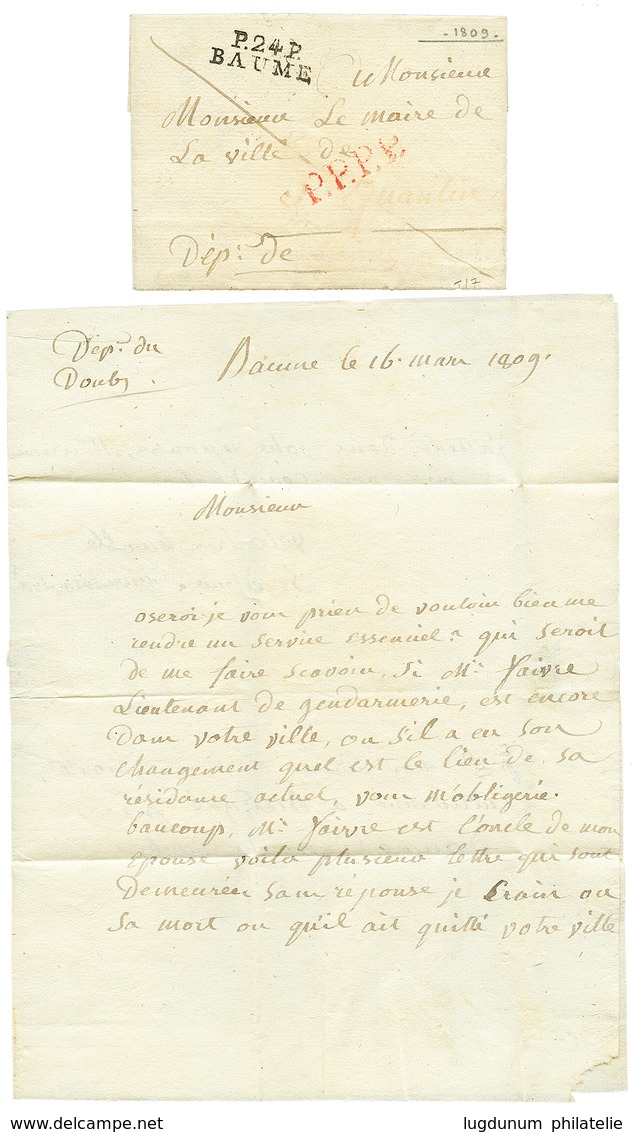 P.24.P.
BAUME
- 1809 -
Monsieur
Monsieur Le maire de
La ville de
P.P.P.P.
Dép.: de
Dép.t du
Doubs
Baume le 16. mars 1809.
Monsieur
oseroi-je vous prier de vouloir bien me
rendre un service essenciel? qui seroit
de me faire scavoir, si Mr. faivre
Lieutenant de gendarmerie, est encore
dans votre ville, ou s'il a eu son
changement quel est le lieu de sa
résidance actuel, vous m'obligerié.
baucoup, Mr. faivre est l'oncle de mon
epouse voila plusieur lettre qui sont
Demeurées sans réponse je Crain ou
Sa mort ou qu'il ait quitté votre ville
www.delcampe.net
lugdunum philatelie